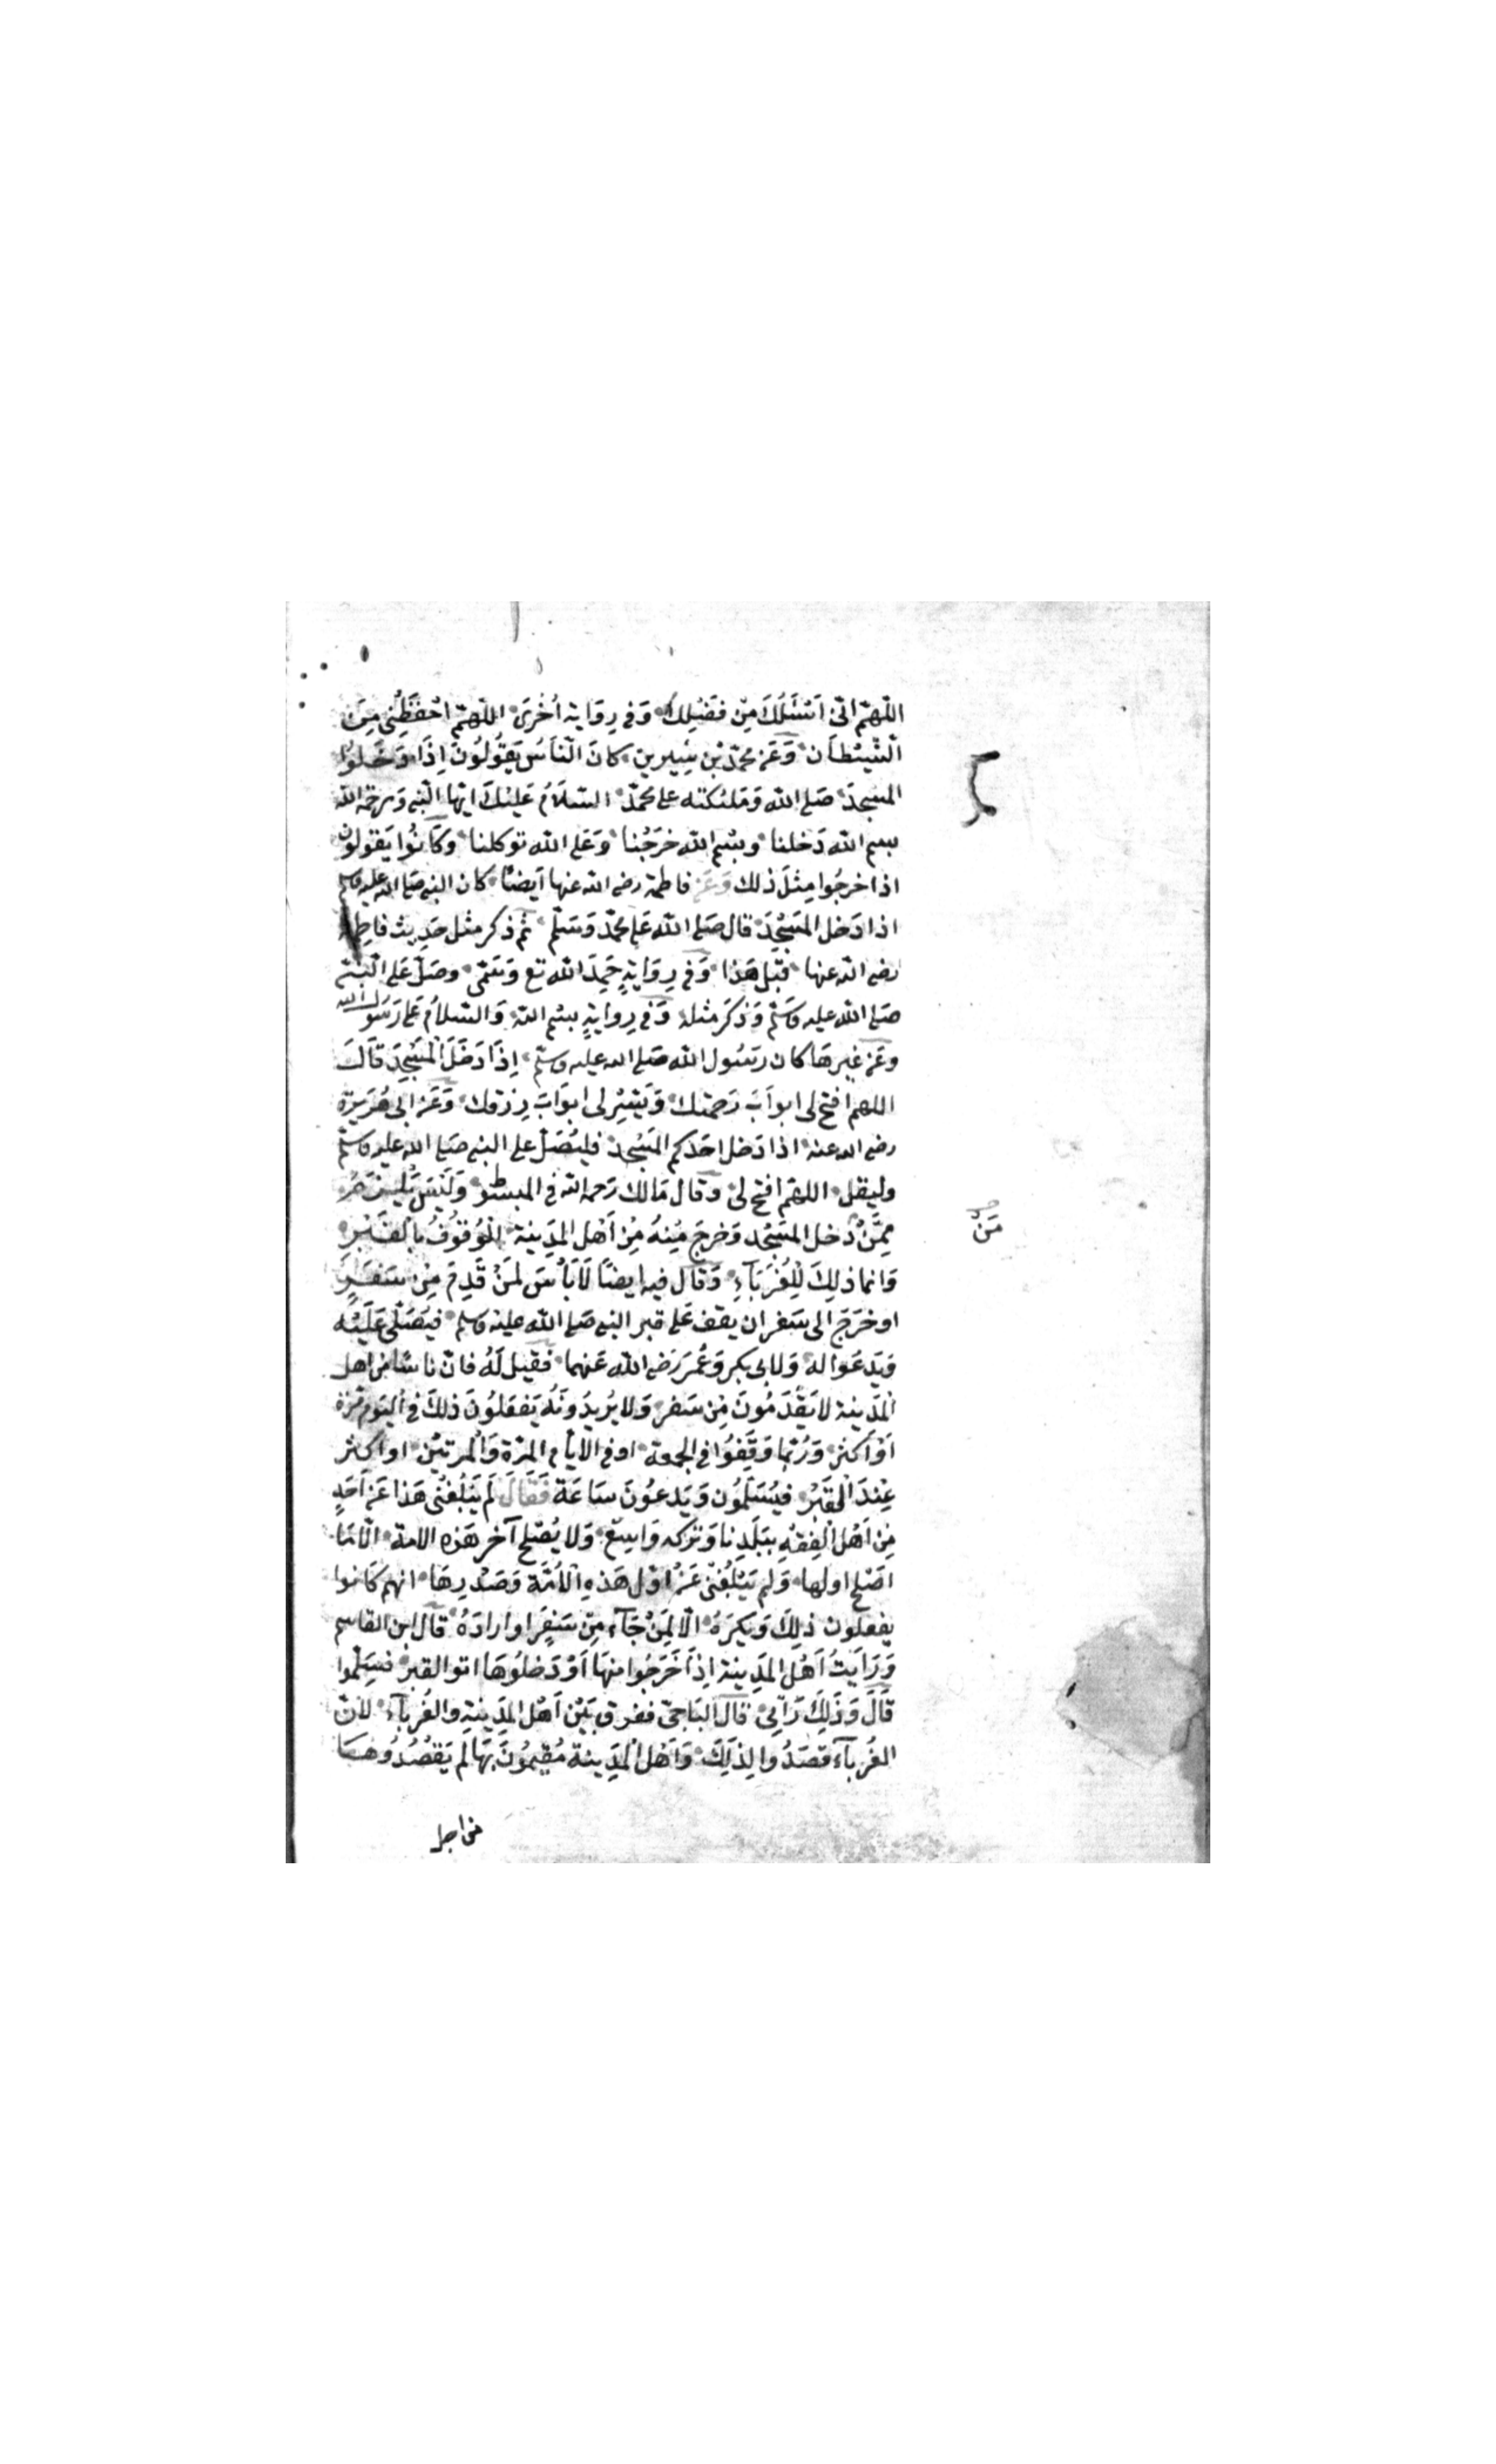 اللّهمّ انّى اَسْئَلُكَ مِنْ فَضْلِكَ وَفى رِوَايَة اُخْرىَ اللّهمّ احْفَظْنِى مِنَ
الشّيْطَان وَعَنْ محمّد بْن سِيرين كانَ النّاسُ يَقُولُونَ اِذَا دَخَلوُا
المسْجدَ صَلى الله وَمَلئكته على محمّد السّلاَمُ عَليْكَ ايّها النّبى وَرحمة الله
بسم الله دَخلنا وبسْم الله خرَجْنا وَعَلى الله توكلنا وكانُوا يَقولون
اذا خرجُوا مِثلَ ذلك وَعَنْ فاطمة رضى الله عنها اَيضًا كان النبى صَلى الله عليه وسلم
اذا دَخل المَسْجِدَ قال صَلى الله عَلى محمّد وَسَلّم ثم ذكر مثل حَدِيث فاطِمة
رضى الله عنها قبْل هَذا وَفى رِوَايةٍ حَمِدَ الله تع وَسَمّى وصَلّى عَلى النّبىّ
صَلى الله عليه وَسَلّم وَذكَرَ مثله وَفى رِوايةٍ بسْم الله وَالسّلاَمُ عَلى رَسُول الله
وعَنْ غيرهَا كان رسُول الله صَلى الله عليه وسلّم اِذَا دَخَلَ المَسْجِدَ قَالَ
اللهم افتح لى ابوَابَ رَحمتك وَيَسّرْ لى ابوَابَ رِزقك وَعَنْ ابى هُرَيرَة
رضى الله عنه اذا دَخل احَدكم المَسْجد فليُصَلّ على النبى صَلى الله عليه وسلّم
وليقل اللهمّ افتح لى وقال مَالك رَحمه الله فى المبسُوط وَليْسَ يَلْزَمُ
مِمَّنْ دَخل المسْجد وَخرجَ مِنهُ مِنْ اَهْل المدِينة الْوُقوُفُ بالْقَبْر
وَانما ذلِكَ لِلْغُرَبَآءِ وَقال فيه ايضًا لاَبَأسَ لمَنْ قَدِمَ مِنْ سَفَرٍ
او خرَجَ الى سَفر ان يقف عَلى قبر النبى صَلى الله عليه وسلم فيُصَلّى عَلَيْه
وَيَدعوَا لهُ وَلابى بكر وَعُمَرَ رَضى الله عَنهما فقيل لَهُ فانّ ناسًا من اهل
المَدينة لا يَقْدَمُونَ مِنْ سَفر وَلا يُرِيدُونَهُ يَفعَلُونَ ذلكَ فى اليَوم مَرّة
اَوْ اكثر وَرُبّما وَقَفُوا فى الجمعة او فى الايّام المرّة وَالمرتَيْن او اكثر
عِنْدَ الْقَبْر فيُسَلّمُون وَيَدعُونَ سَاعَة فَقَالَ لَمْ يَبْلُغْنى هَذا عَنْ اَحَدٍ
مِنْ اَهْل الفِقْهِ بِبَلَدِنا وَترْكه وَاسِعٌ وَلا يُصْلح آخر هَذه الامة الّا مَا
اصْلح اوّلها وَلم يَبْلُغْنى عَنْ اوّل هَذهِ الْاُمَّة وَصَدْرِهَا انهم كَانوا
يفعلون ذلِكَ وَيكرَهُ الّا لِمَنْ جَآءَ مِنْ سَفَر او ارادَهُ قال ابن القاسم
وَرَاَيْتُ اَهْلَ المَدِينة اِذا خَرَجُوا منهَا اَوْ دَخلُوهَا اتوا القبر فسَلّموا
قَالَ وَذَلِكَ رَأىى قال البَاجى ففرق بَيْنَ اَهْل المدِينةِ والغُربآء لانّ
الغُربآءَ قصَدُوا لِذَلِكَ وَاَهْل المدِينة مُقيمُونَ بهَا لم يَقصُدُوهَا
من
من اجل